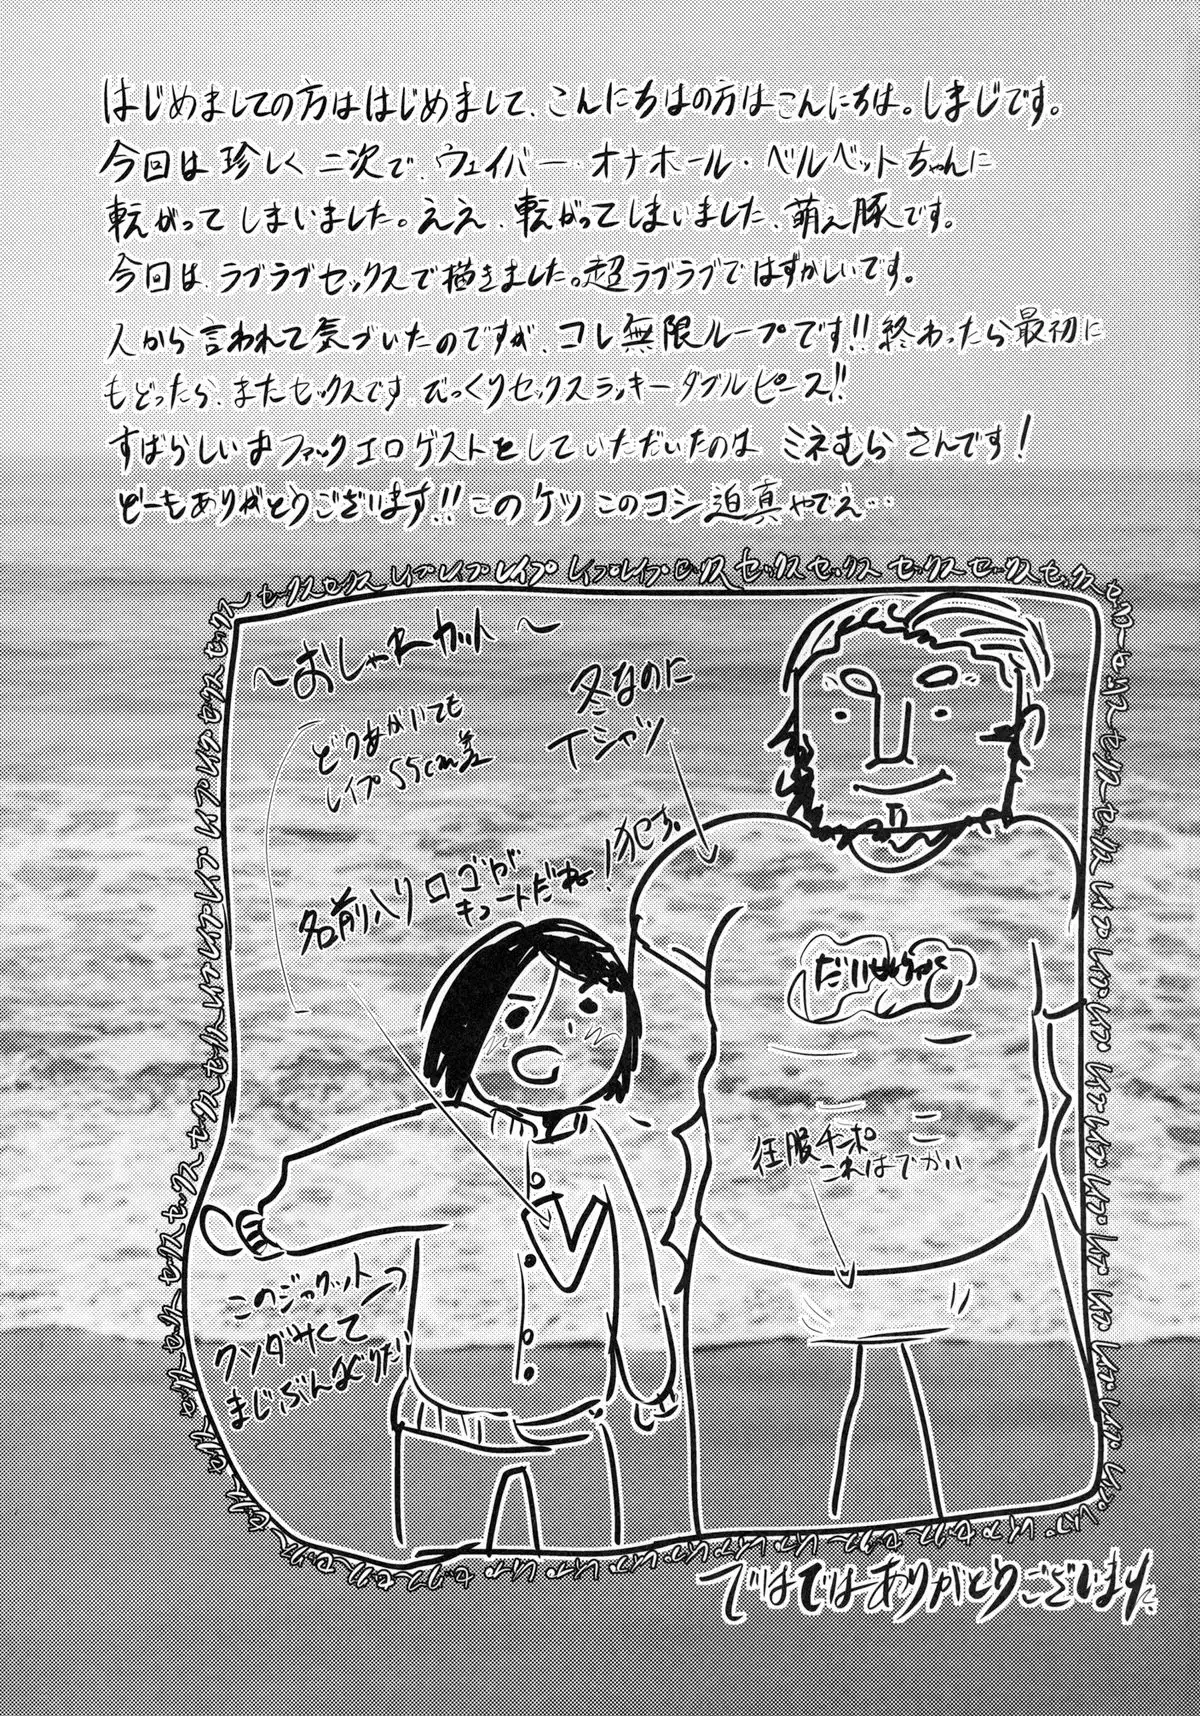 はじめましての方ははじめまして、こんにちはの方はこんにちは。しまじです。
今回は珍しく二次で、ウェイバー・オナホール・ベルベットちゃんに
転がってしまいました。ええ、転がってしまいました、萌え豚です。
今回は、ラブラブセックスで描きました。超ラブラブではずかしいです。
人から言われて気づいたのですが、コレ無限ループです!!終わったら最初に
もどったら、またセックスです びっくりセックスラッキーダブルピース!!
すばらしいおファックエロゲストをしていただいたのは ミネむらさんです!
どーもありがとうございます!!このケツこのコシ迫真やでえ…
〜おしゃれカット〜
冬なのに
Tシャツ
どうあがいても
レイプ 55cm差
名前入りロゴが
キュートだね!犯す。
征服チンポ
これはでかい
このジャケット
クソダサくて
まじぶんなぐりたい
ではではありがとうございます。